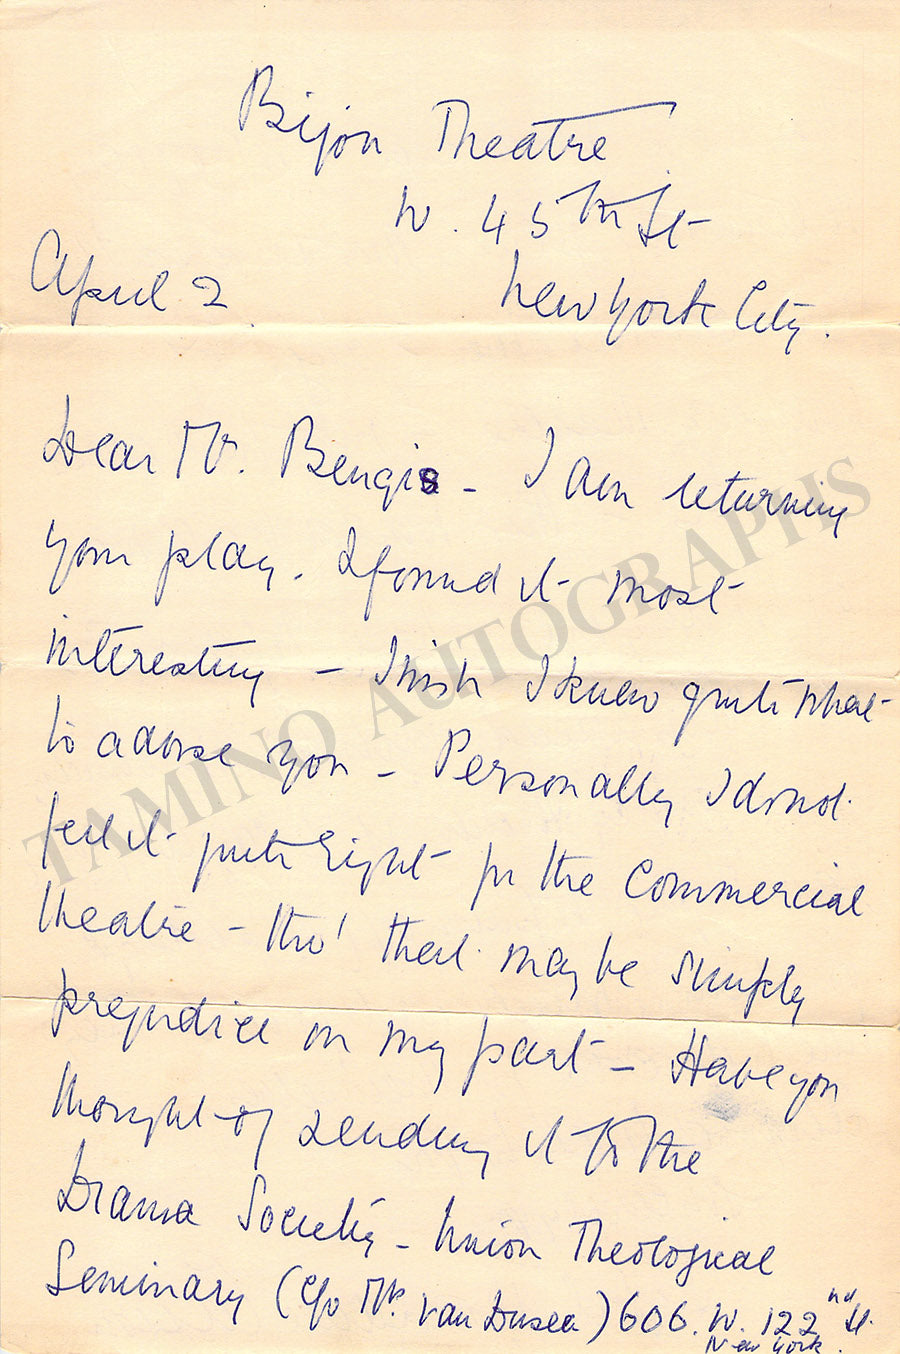 Bijou Theatre
W. 45th St
New York City.
April 2.
Dear Mr. Bengis - I am returning
your play. I found it most
interesting - I wish I knew quite what
to advise you - Personally I do not
feel it quite right for the commercial
theatre - tho' there may be simply
prejudice on my part - Have you
thought of sending it to the
Drama Society - Union Theological
Seminary (c/o Mr. Van Dusen) 606. W. 122nd St.
New York.
TAMINO AUTOGRAPHS